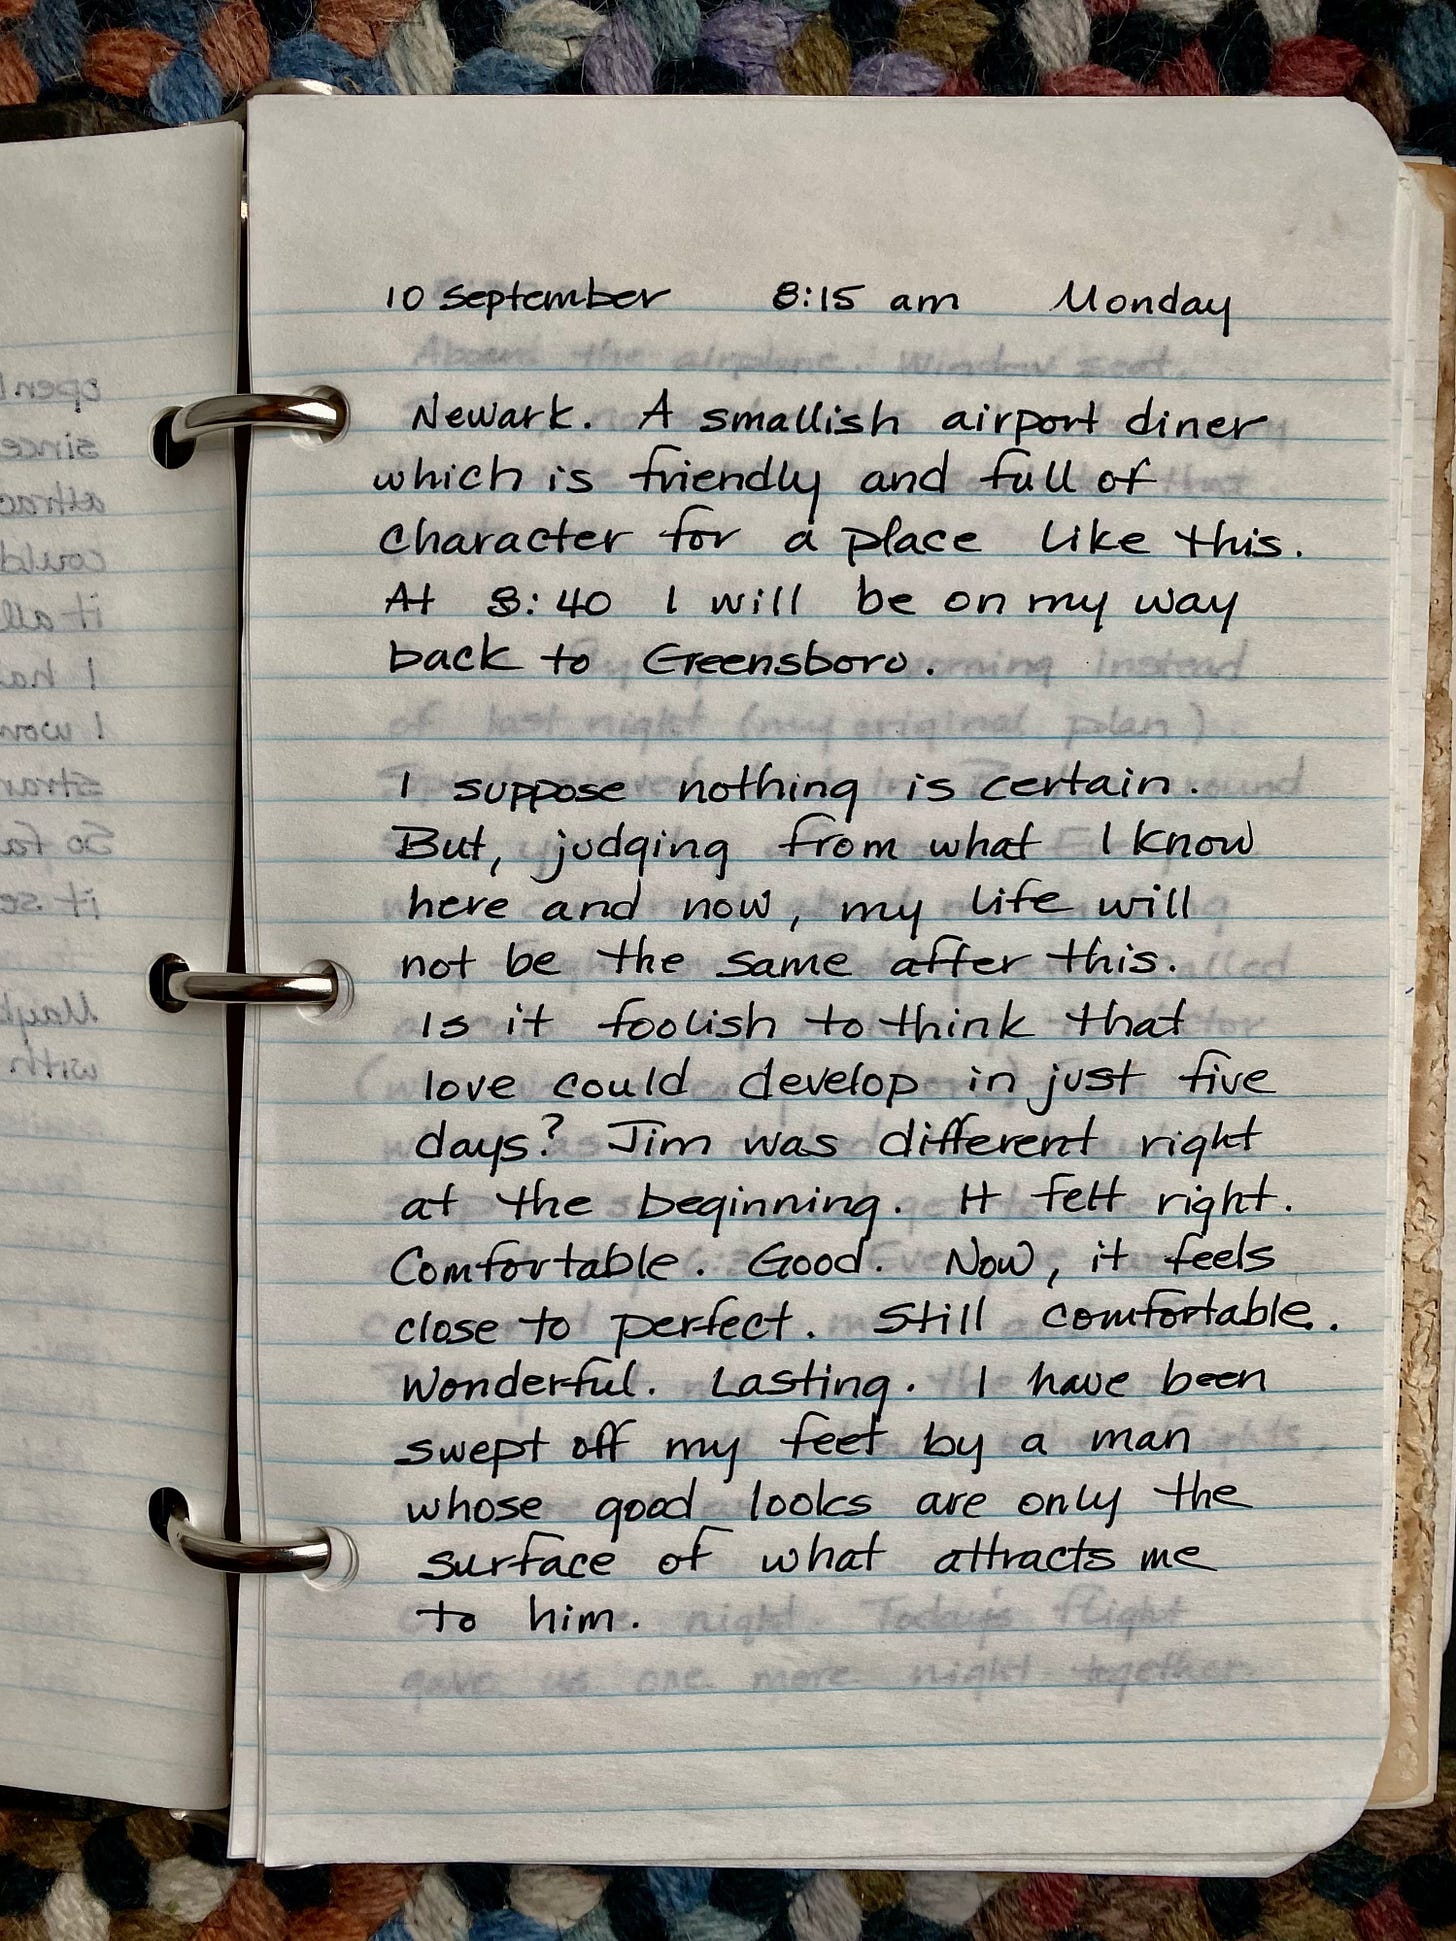 10 September 8:15 am Monday
Aboard the airplane. Window seat.
Newark. A smallish airport diner
which is friendly and full of
character for a place like this.
At 8:40 I will be on my way
back to Greensboro.
morning instead
of last night (my original plan).
I suppose nothing is certain.
But, judging from what I know
here and now, my life will
not be the same after this.
Is it foolish to think that
love could develop in just five
days? Jim was different right
at the beginning. It felt right.
Comfortable. Good. Now, it feels
close to perfect. Still comfortable.
Wonderful. Lasting. I have been
swept off my feet by a man
whose good looks are only the
surface of what attracts me
to him.
night. Today's flight
gave us one more night together.